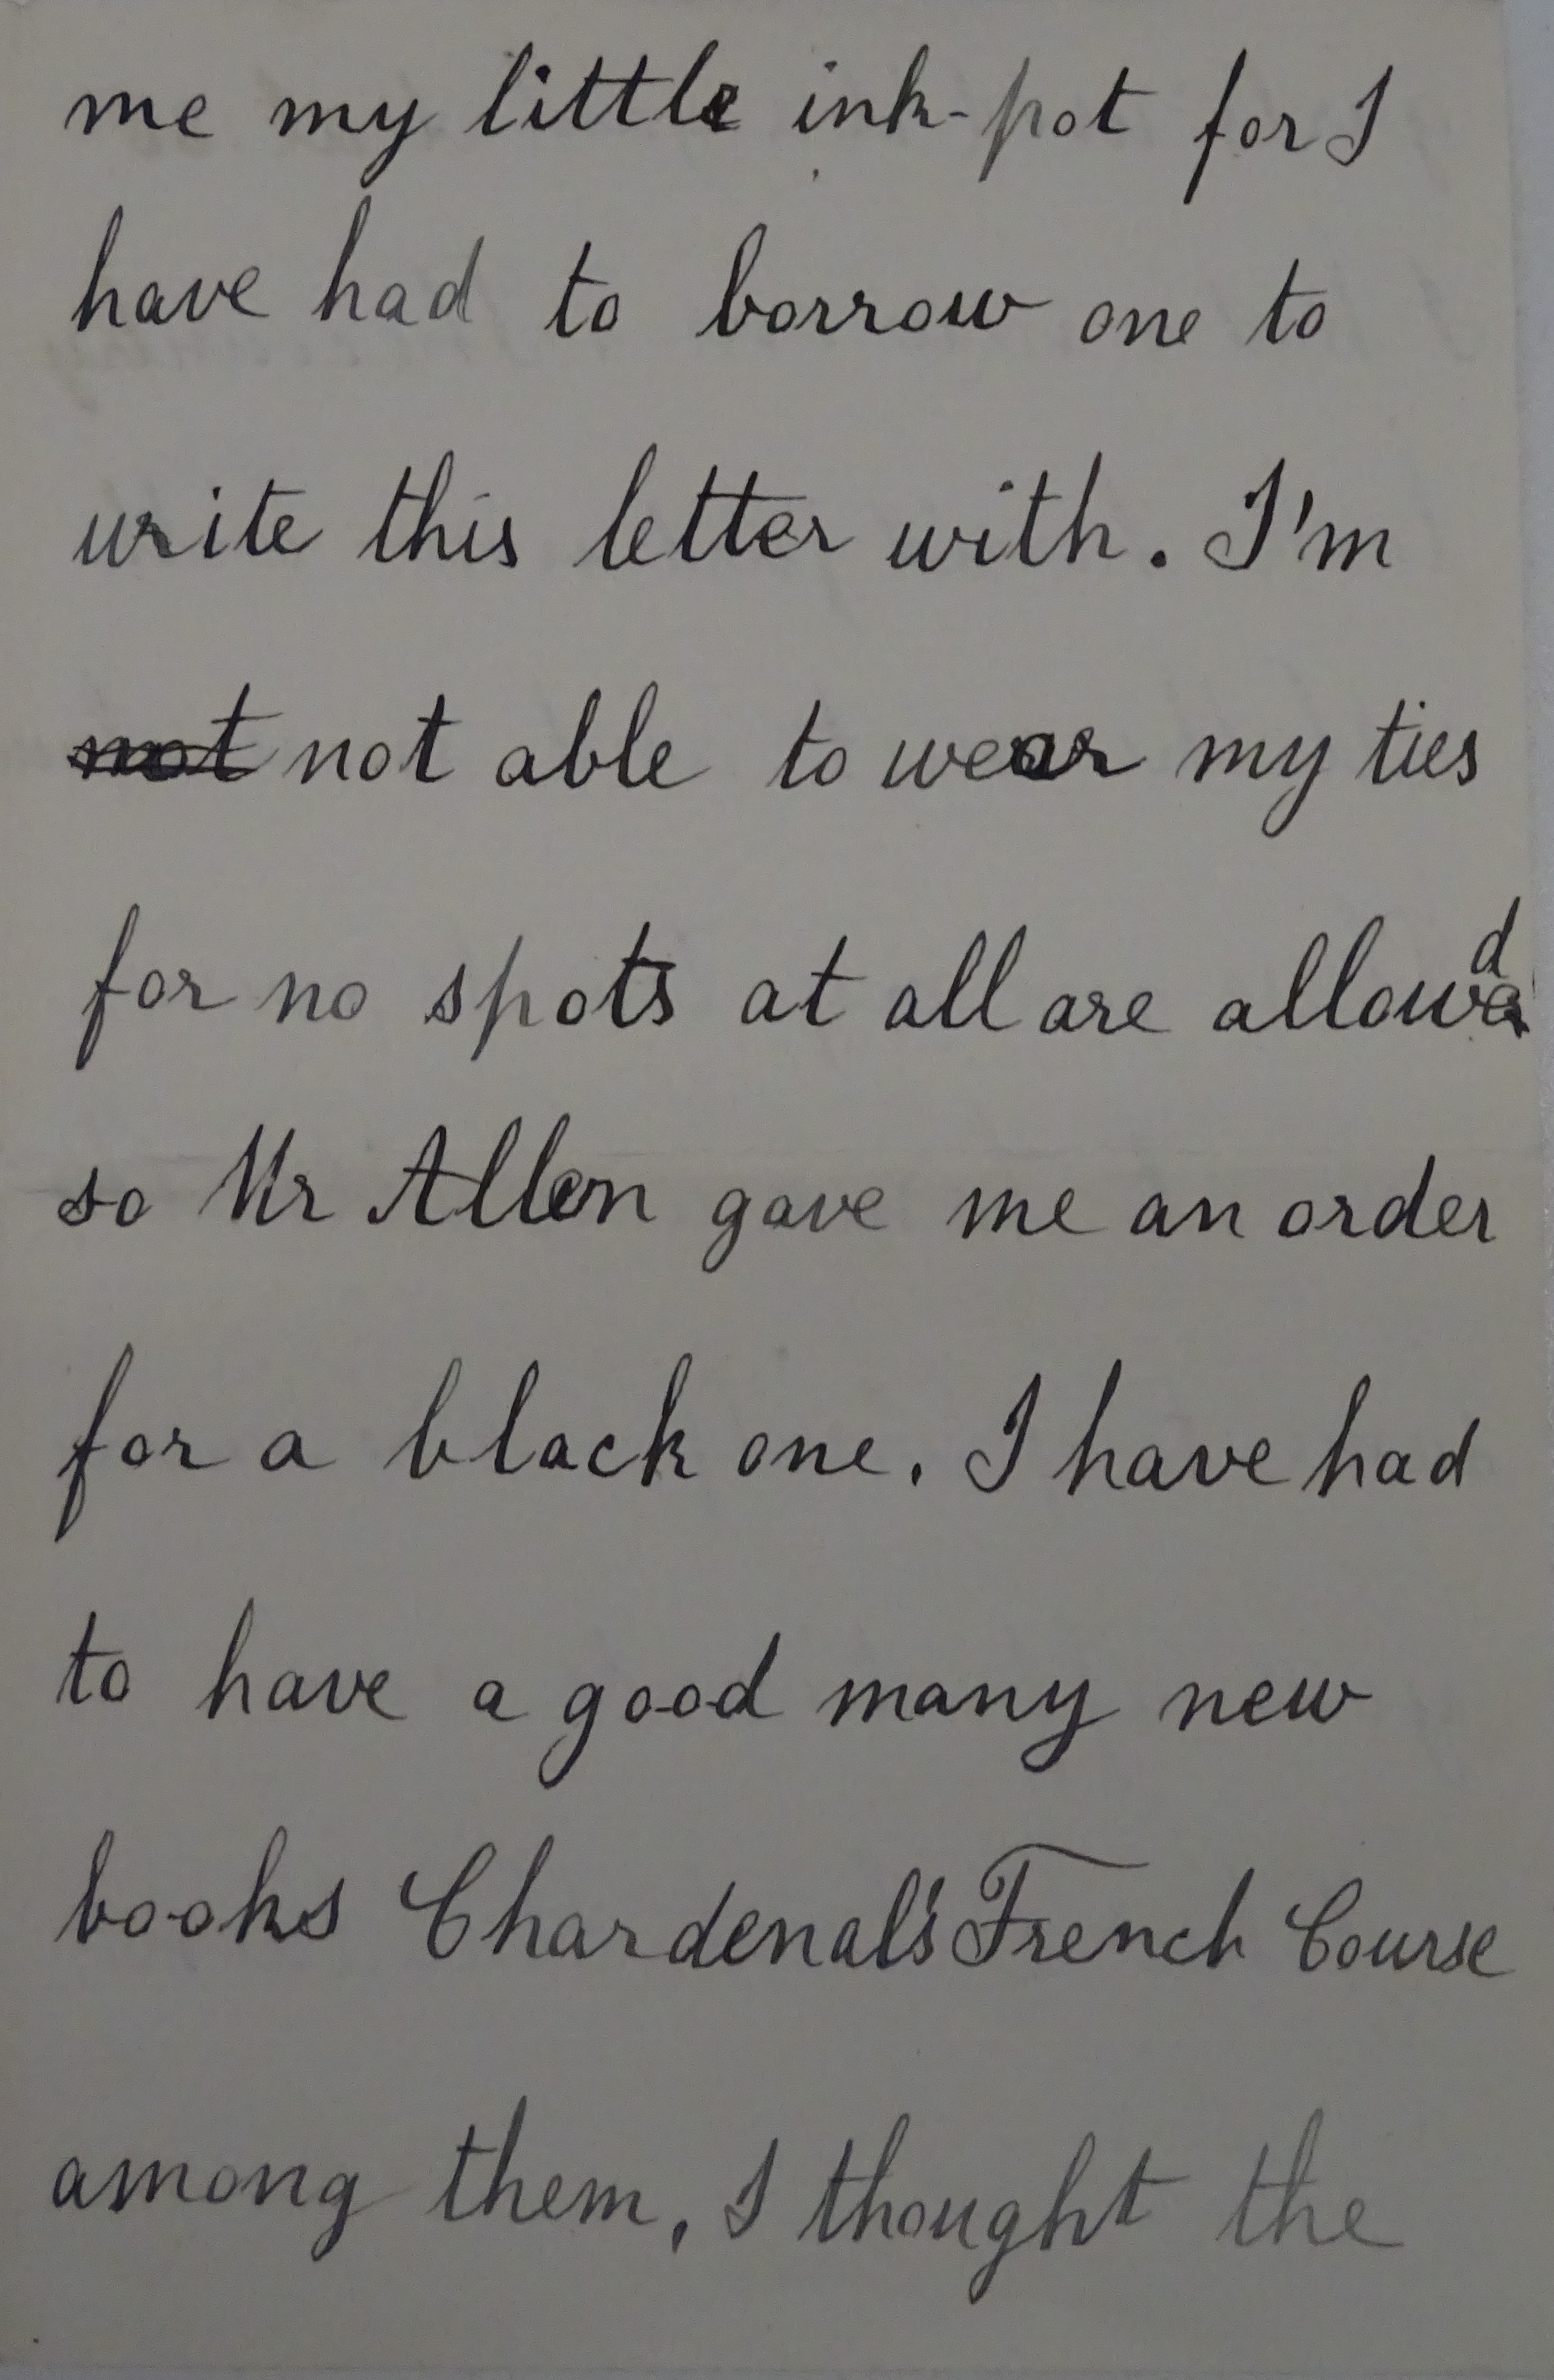 me my little ink-pot for I
have had to borrow one to
write this letter with. I'm
not not able to wear my ties
for no spots at all are allowed
so Mr Allen gave me an order
for a black one. I have had
to have a good many new
books Chardenal's French Course
among them, I thought the